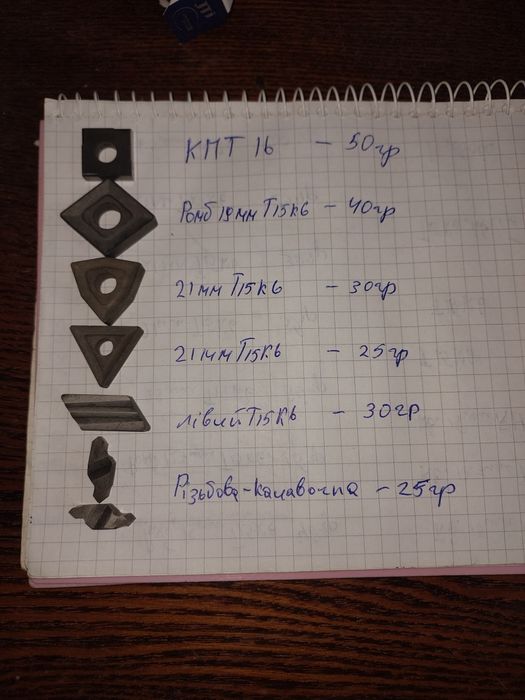 КНТ 16 - 50гр
Ромб 19мм Т15К6 - 40гр
21мм Т15К6 - 30гр
21мм Т15К6 - 25гр
лівий Т15К6 - 30гр
Різьбова-канавочна - 25гр